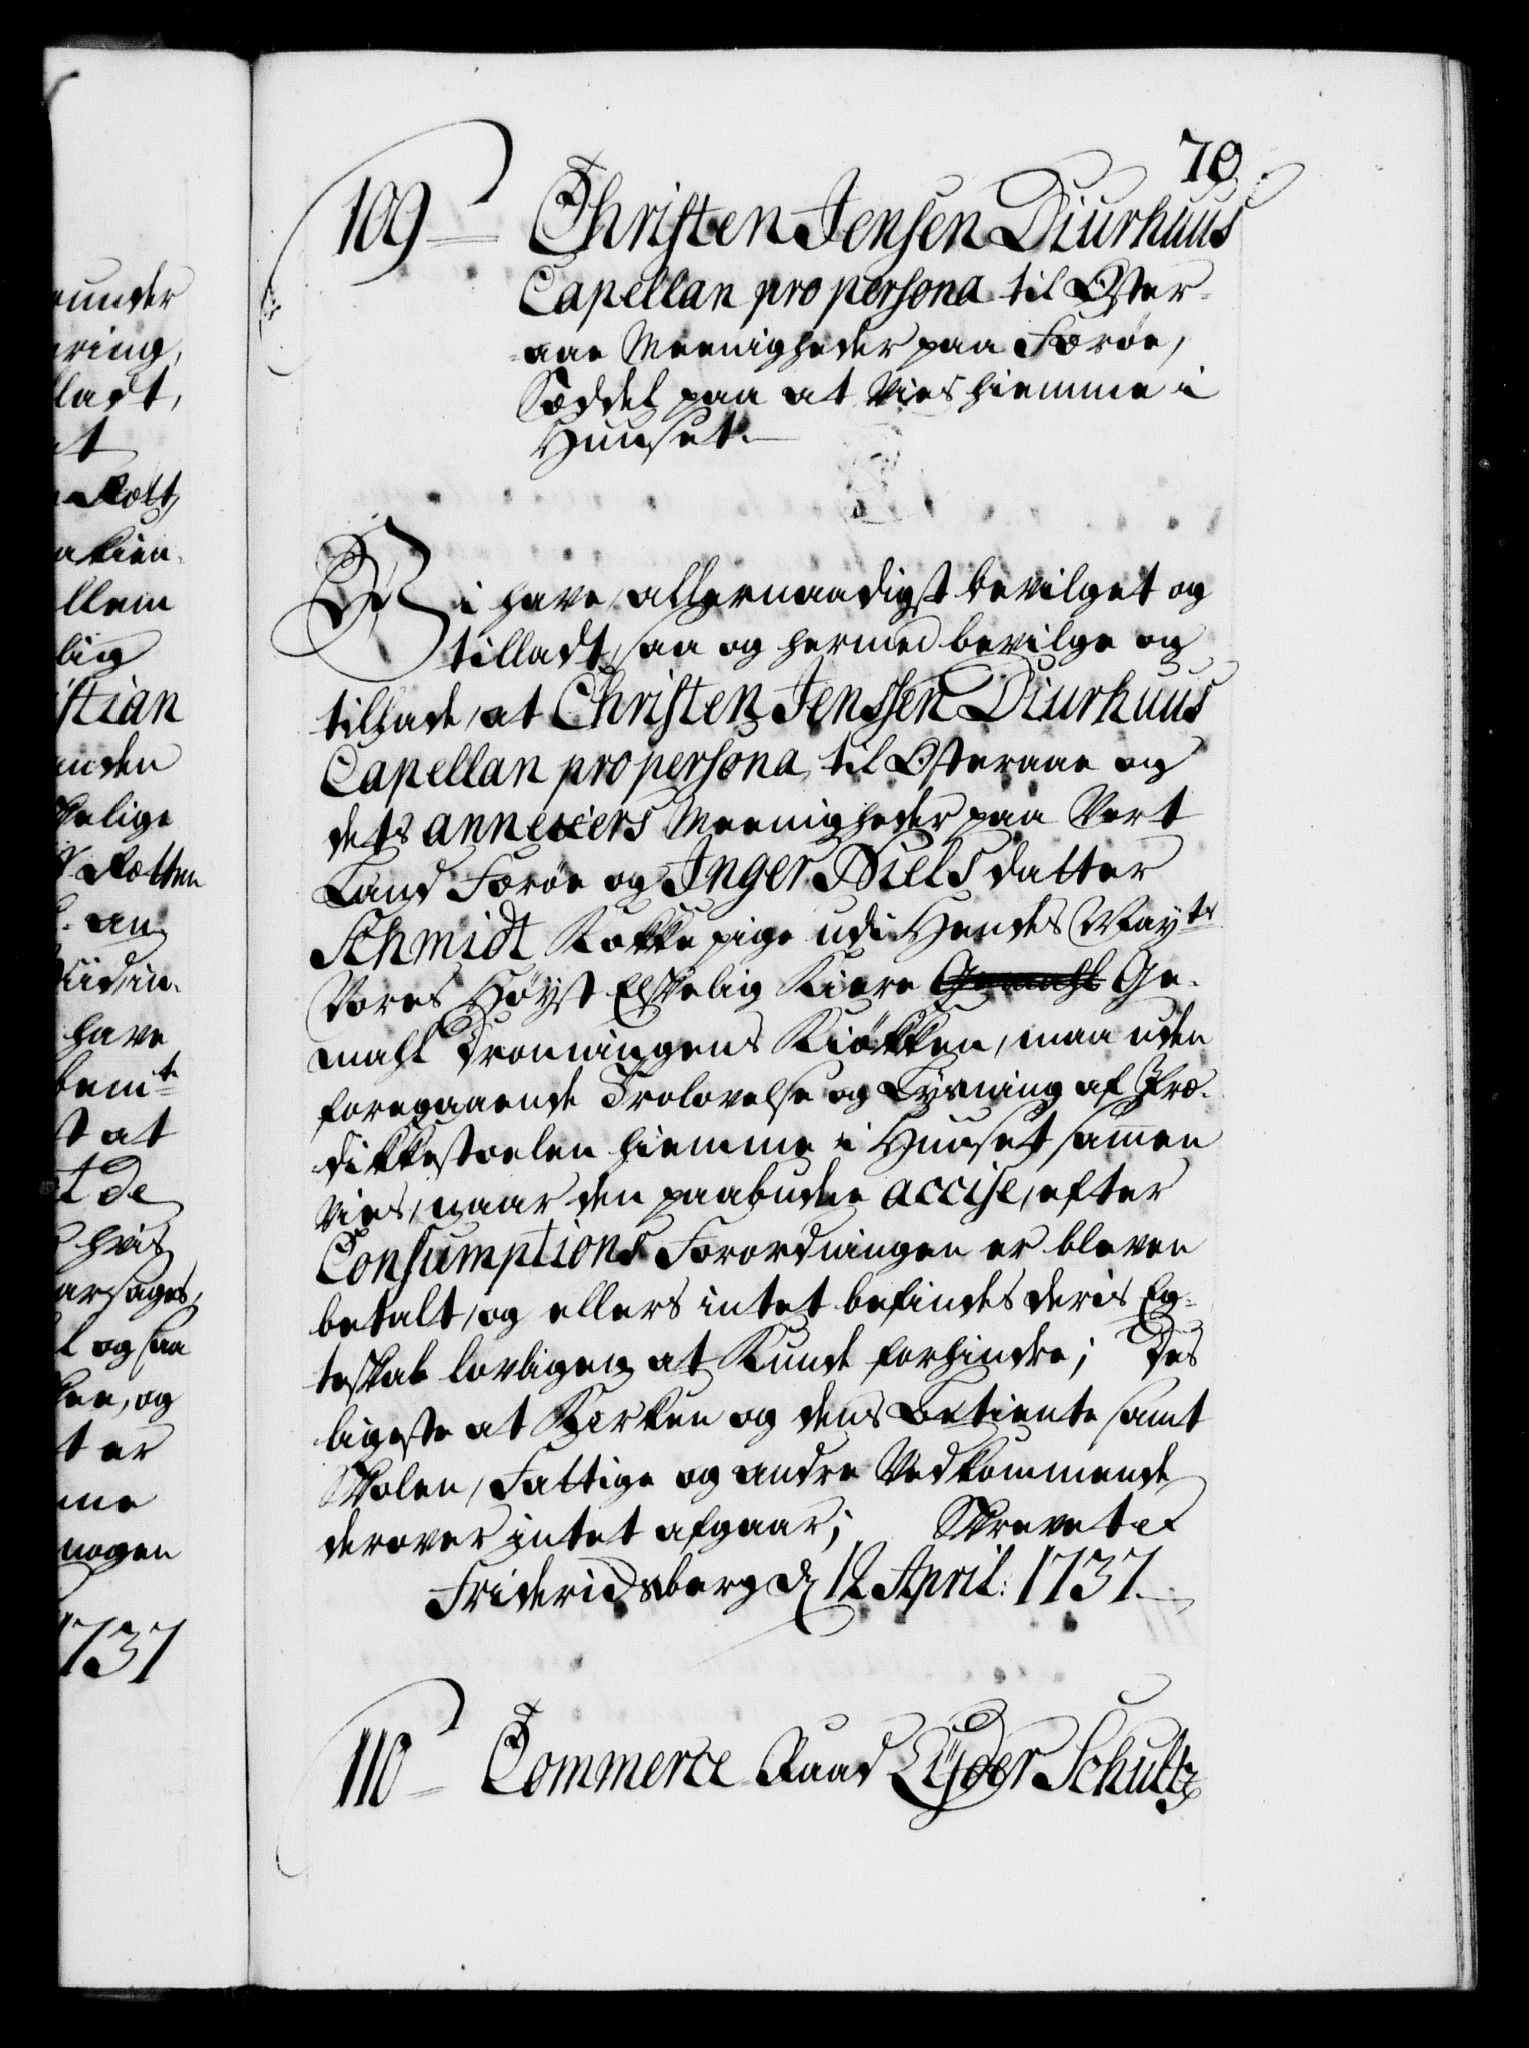 70.
109 Christen Jensen Diurhuus
Capellan pro persona til Øster-
aae Meenigheder paa Færøe,
Sæddel paa at Vies hiemme i
Huuset.
Vi have allernaadigst bevilget og
tilladt, saa og hermed bevilge og
tillade, at Christen Jenssen Diurhuus
Capellan pro persona til Østeraae og
dets annexers Meenigheder paa Vort
Land Færøe og Inger Niels datter
Schmidt Kokke pige udi Hendes May.ts
Vores Høyst Elskelig Kiere Gemahl Ge-
mahl Dronningens Kiøkken, maa uden
foregaaende Trolovelse og Lysning af Præ-
dikkestoelen hiemme i Huuset samen
vies, naar den paabudne accise, efter
Consumptions Forordningen er bleven
betalt, og ellers intet befindes deris Eg-
teskab lovligen at Kunde forhindre; Des
ligeste at Kirken og dens Betiente samt
Skolen, Fattige og andre Vedkommende
derover intet afgaar; Skrevet et
Friderichsberg d 12 April: 1737.
110 Commerce Raad Lyder Schultz
eunder
ring,
ladt,
t
Rætt
llem
lig
stian
anden
skelige
Rætten
an
have
bemt
st at
t de
hvis
arsages,
l og saa
, og
t er
me
nogen
1737